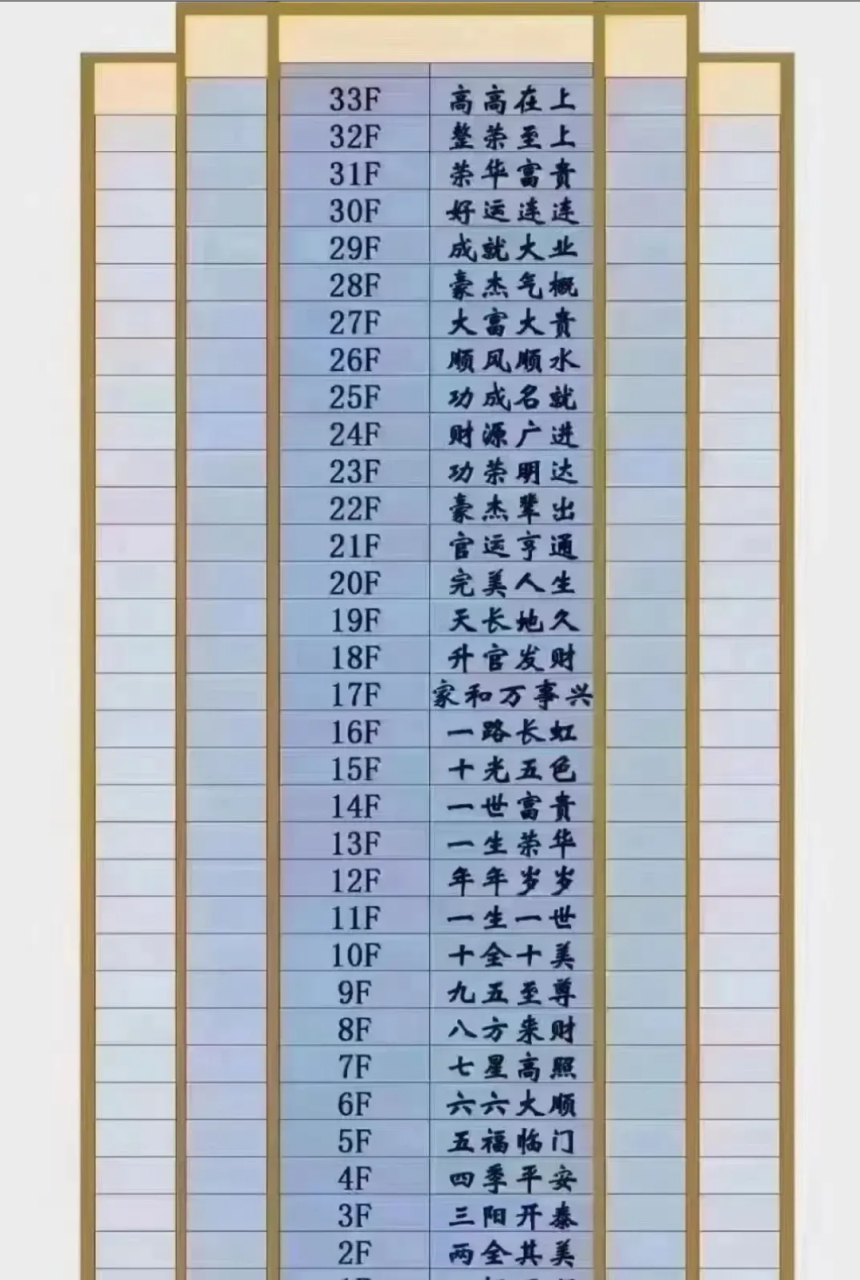 33F 高高在上
32F 整荣至上
31F 荣华富贵
30F 好运连连
29F 成就大业
28F 豪杰气概
27F 大富大贵
26F 顺风顺水
25F 功成名就
24F 财源广进
23F 功荣明达
22F 豪杰辈出
21F 官运亨通
20F 完美人生
19F 天长地久
18F 升官发财
17F 家和万事兴
16F 一路长虹
15F 十光五色
14F 一世富贵
13F 一生荣华
12F 年年岁岁
11F 一生一世
10F 十全十美
9F 九五至尊
8F 八方来财
7F 七星高照
6F 六六大顺
5F 五福临门
4F 四季平安
3F 三阳开泰
2F 两全其美